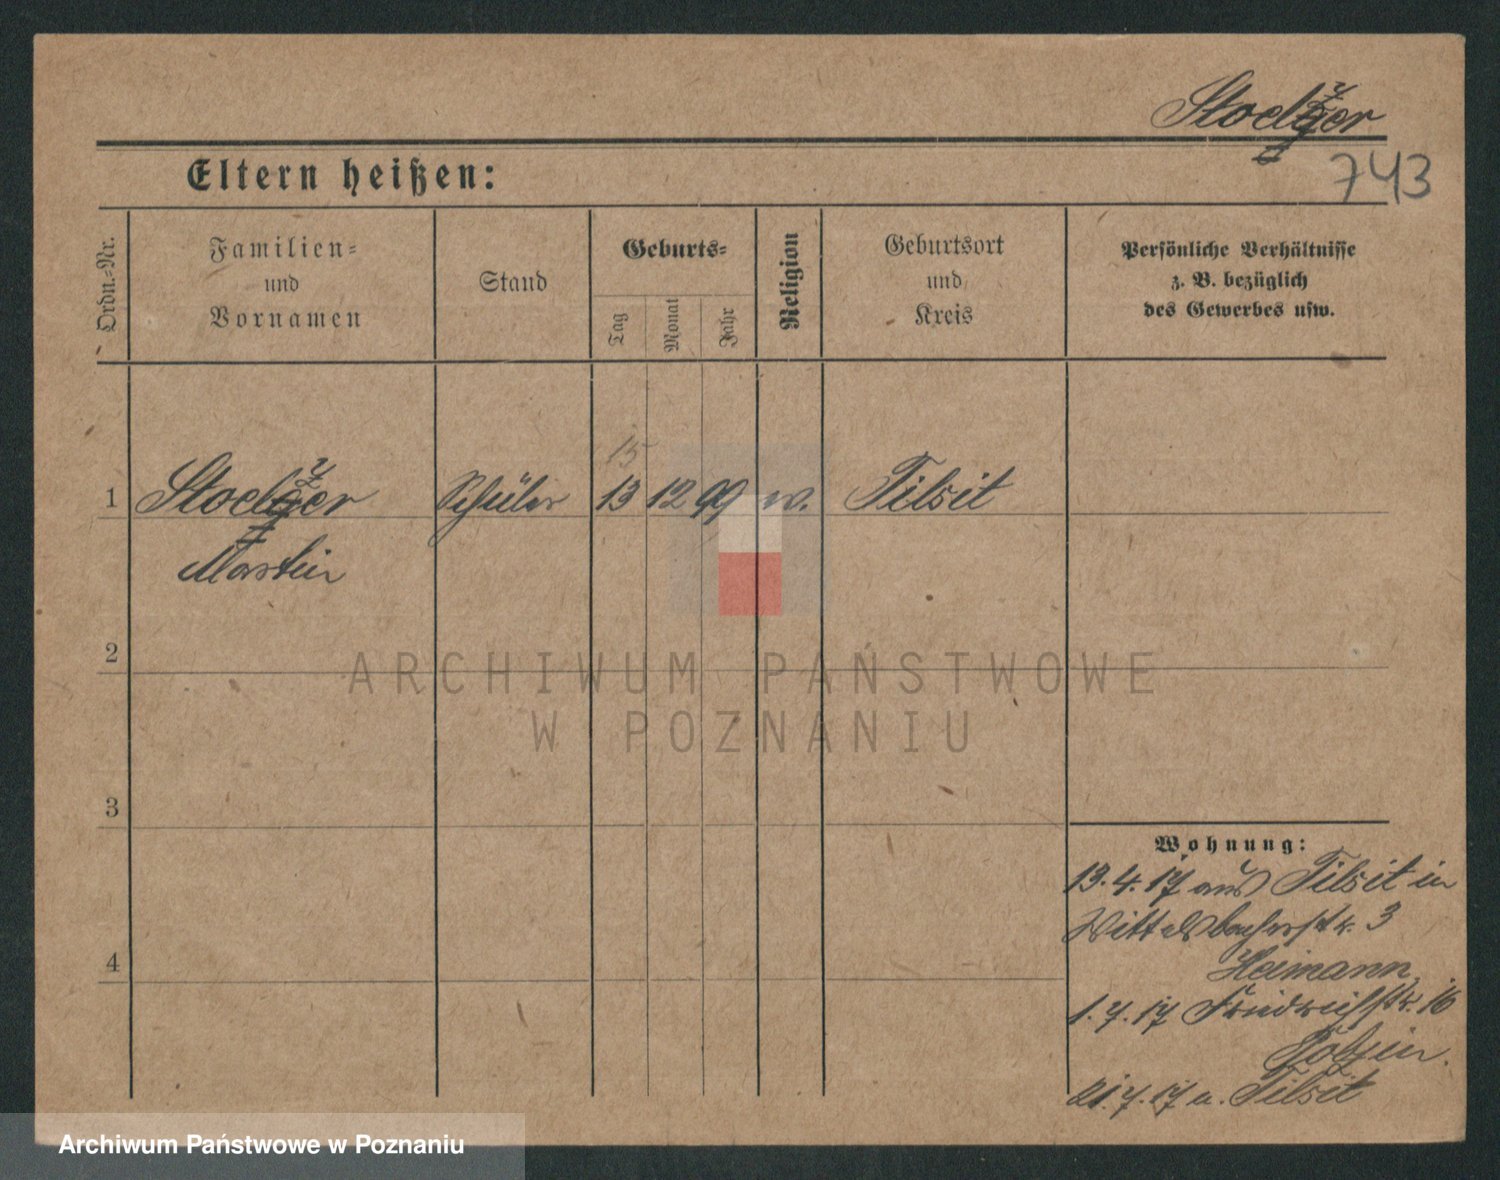 Stoelzer
743
Eltern heißen:
Ordn.-Nr.
Familien-
und
Vornamen
Stand
Geburts-
Tag
Monat
Jahr
Religion
Geburtsort
und
Kreis
Persönliche Verhältnisse
z. B. bezüglich
des Gewerbes usw.
15
1 Stoelzer Schüler 13 12 99 Tilsit
Martin
2
3
4
ARCHIWUM PAŃSTWOWE
W POZNANIU
Wohnung:
13.4.17 aus Tilsit in
Wittelsbacherstr. 3
Heimann
1.7.17 Friedrichstr. 16
21.7.17 n. Tilsit
Archiwum Państwowe w Poznaniu